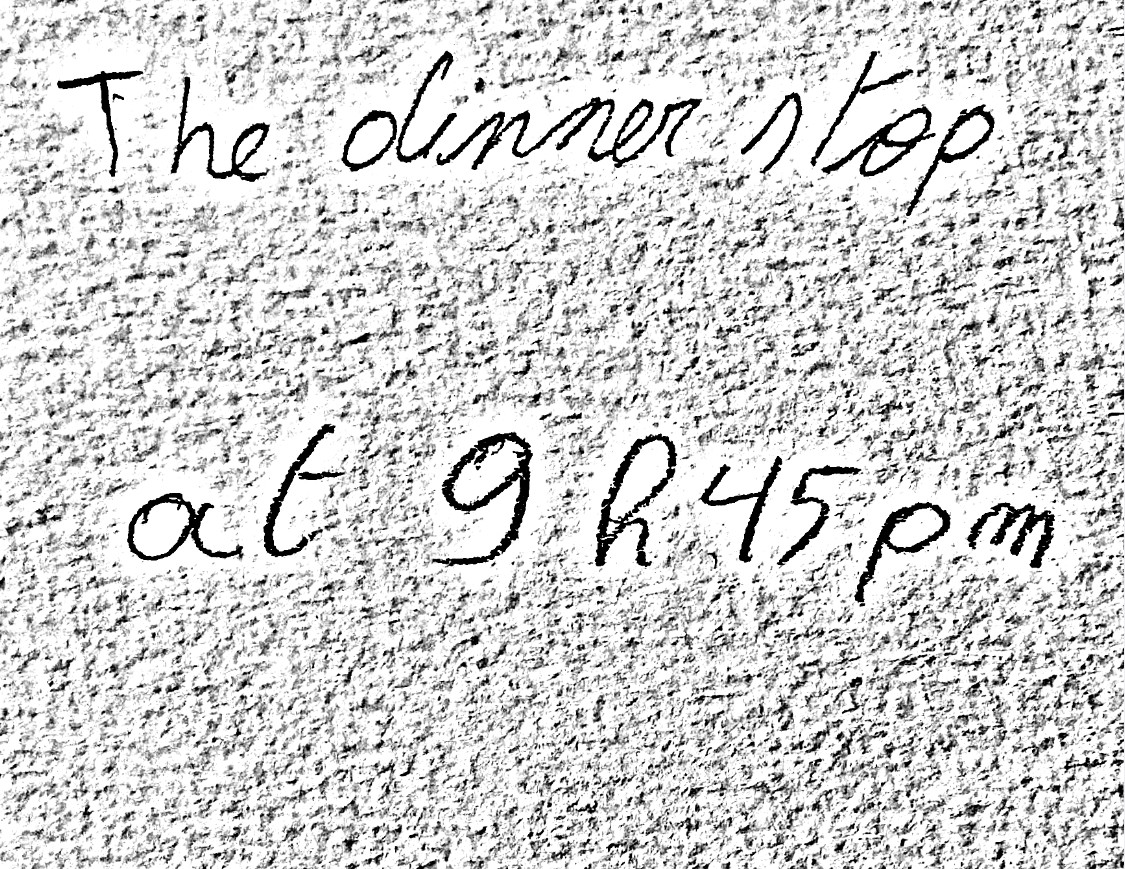 The dinner stop
at 9 h 45 pm